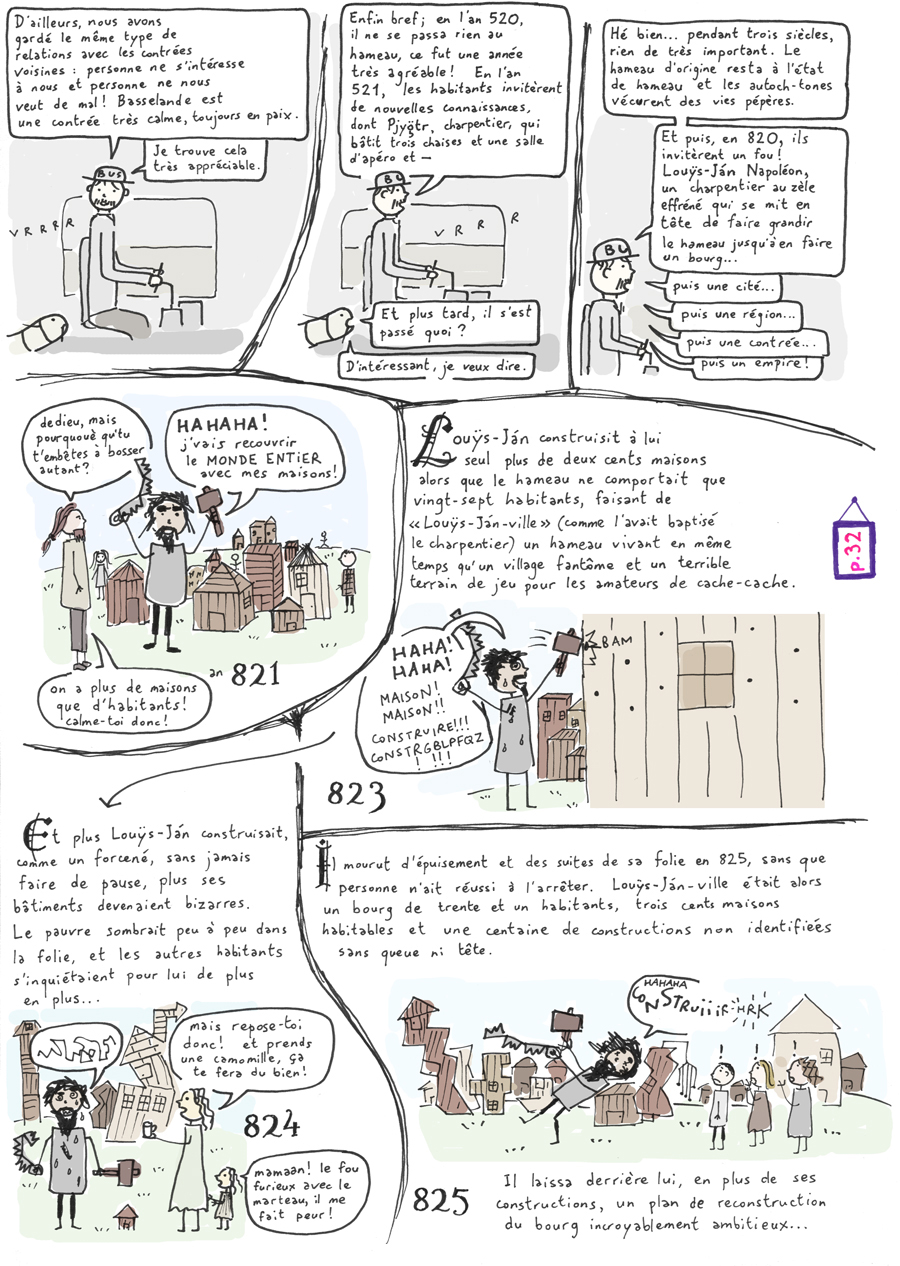 D'ailleurs, nous avons
gardé le même type de
relations avec les contrées
voisines : personne ne s'intéresse
à nous et personne ne nous
veut de mal ! Basselande est
une contrée très calme, toujours en paix.
Je trouve cela
très appréciable.
BUS
VRRRR
Enfin bref ; en l'an 520,
il ne se passa rien au
hameau, ce fut une année
très agréable ! En l'an
521, les habitants invitèrent
de nouvelles connaissances,
dont Pjÿötr, charpentier, qui
bâtit trois chaises et une salle
d'apéro et —
BU
V R R R
Et plus tard, il s'est
passé quoi ?
D'intéressant, je veux dire.
Hé bien... pendant trois siècles,
rien de très important. Le
hameau d'origine resta à l'état
de hameau et les autoch-tones
vécurent des vies pépères.
Et puis, en 820, ils
invitèrent un fou !
Louÿs-Ján Napoléon,
un charpentier au zèle
effréné qui se mit en
tête de faire grandir
le hameau jusqu'à en faire
un bourg...
BU
puis une cité...
puis une région...
puis une contrée...
puis un empire !
dedieu, mais
pourquouè qu'tu
t'embêtes à bosser
autant ?
HAHAHA !
j'vais recouvrir
le MONDE ENTIER
avec mes maisons !
on a plus de maisons
que d'habitants !
calme-toi donc !
an 821
Louÿs-Ján construisit à lui
seul plus de deux cents maisons
alors que le hameau ne comportait que
vingt-sept habitants, faisant de
« Louÿs-Ján-ville » (comme l'avait baptisé
le charpentier) un hameau vivant en même
temps qu'un village fantôme et un terrible
terrain de jeu pour les amateurs de cache-cache.
p.32
HAHA !
HAHA !
MAISON !
MAISON !!
CONSTRUIRE !!!
CONSTRGBLPFQZ
! !!!
BAM
823
Et plus Louÿs-Ján construisait,
comme un forcené, sans jamais
faire de pause, plus ses
bâtiments devenaient bizarres.
Le pauvre sombrait peu à peu dans
la folie, et les autres habitants
s'inquiétaient pour lui de plus
en plus...
mais repose-toi
donc ! et prends
une camomille, ça
te fera du bien !
824
mamaan ! le fou
furieux avec le
marteau, il me
fait peur !
Il mourut d'épuisement et des suites de sa folie en 825, sans que
personne n'ait réussi à l'arrêter. Louÿs-Ján-ville était alors
un bourg de trente et un habitants, trois cents maisons
habitables et une centaine de constructions non identifiéés
sans queue ni tête.
HAHAHA
CONSTRUiiiR-HRK
! ! !
825
Il laissa derrière lui, en plus de ses
constructions, un plan de reconstruction
du bourg incroyablement ambitieux...